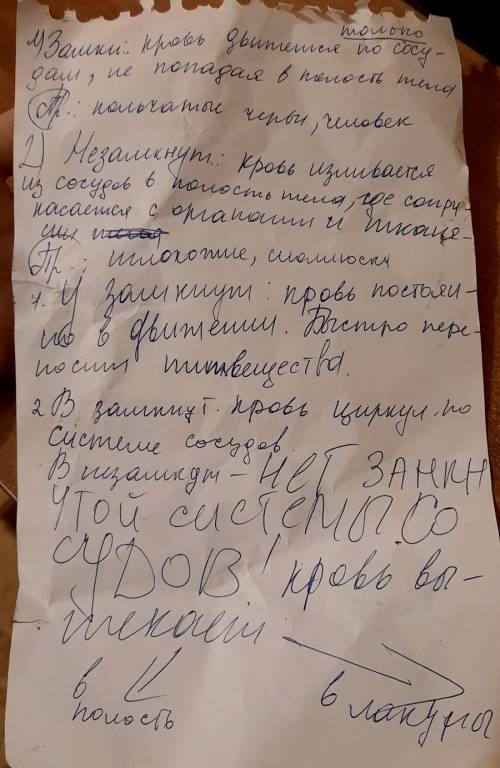 только
1) Замкн: кровь движется по сосу-
дам, не попадая в полость тела
Пр.: кольчатые черви, человек
2) Незамкнут.: кровь изливается
из сосудов в полость тела, где сопри
касается с органами и ткане-
ми
Пр.: иглокожие, моллюски
1. У замкнут: кровь постоян-
но в движении. Быстро пере-
носит пит. вещества.
2 В замкнут. кровь циркул. по
системе сосудов
В незамкнут – НЕТ ЗАМКН
УТОЙ СИСТЕМЫ СО
СУДОВ! кровь вы-
текает
в полость
в лакуны